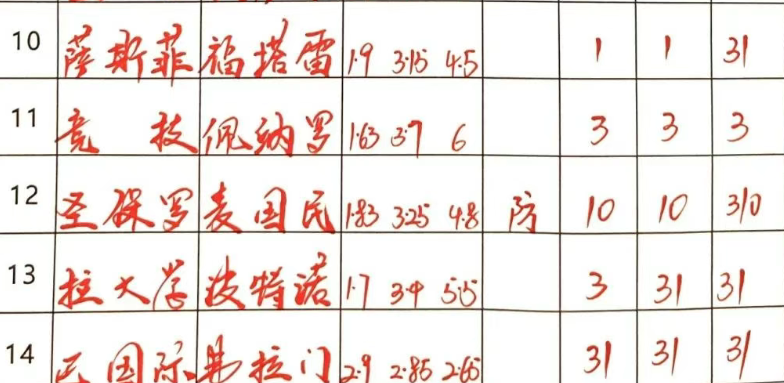 10 萨斯菲 福塔雷 1.9 3.15 4.5 1 1 31
11 竞技 佩纳罗 1.63 3.7 6 3 3 3
12 圣保罗 麦国民 1.83 3.25 4.8 防 10 10 310
13 拉大学 波特诺 1.7 3.4 5.5 3 31 31
14 国际 弗拉门 2.9 2.85 2.65 31 31 31